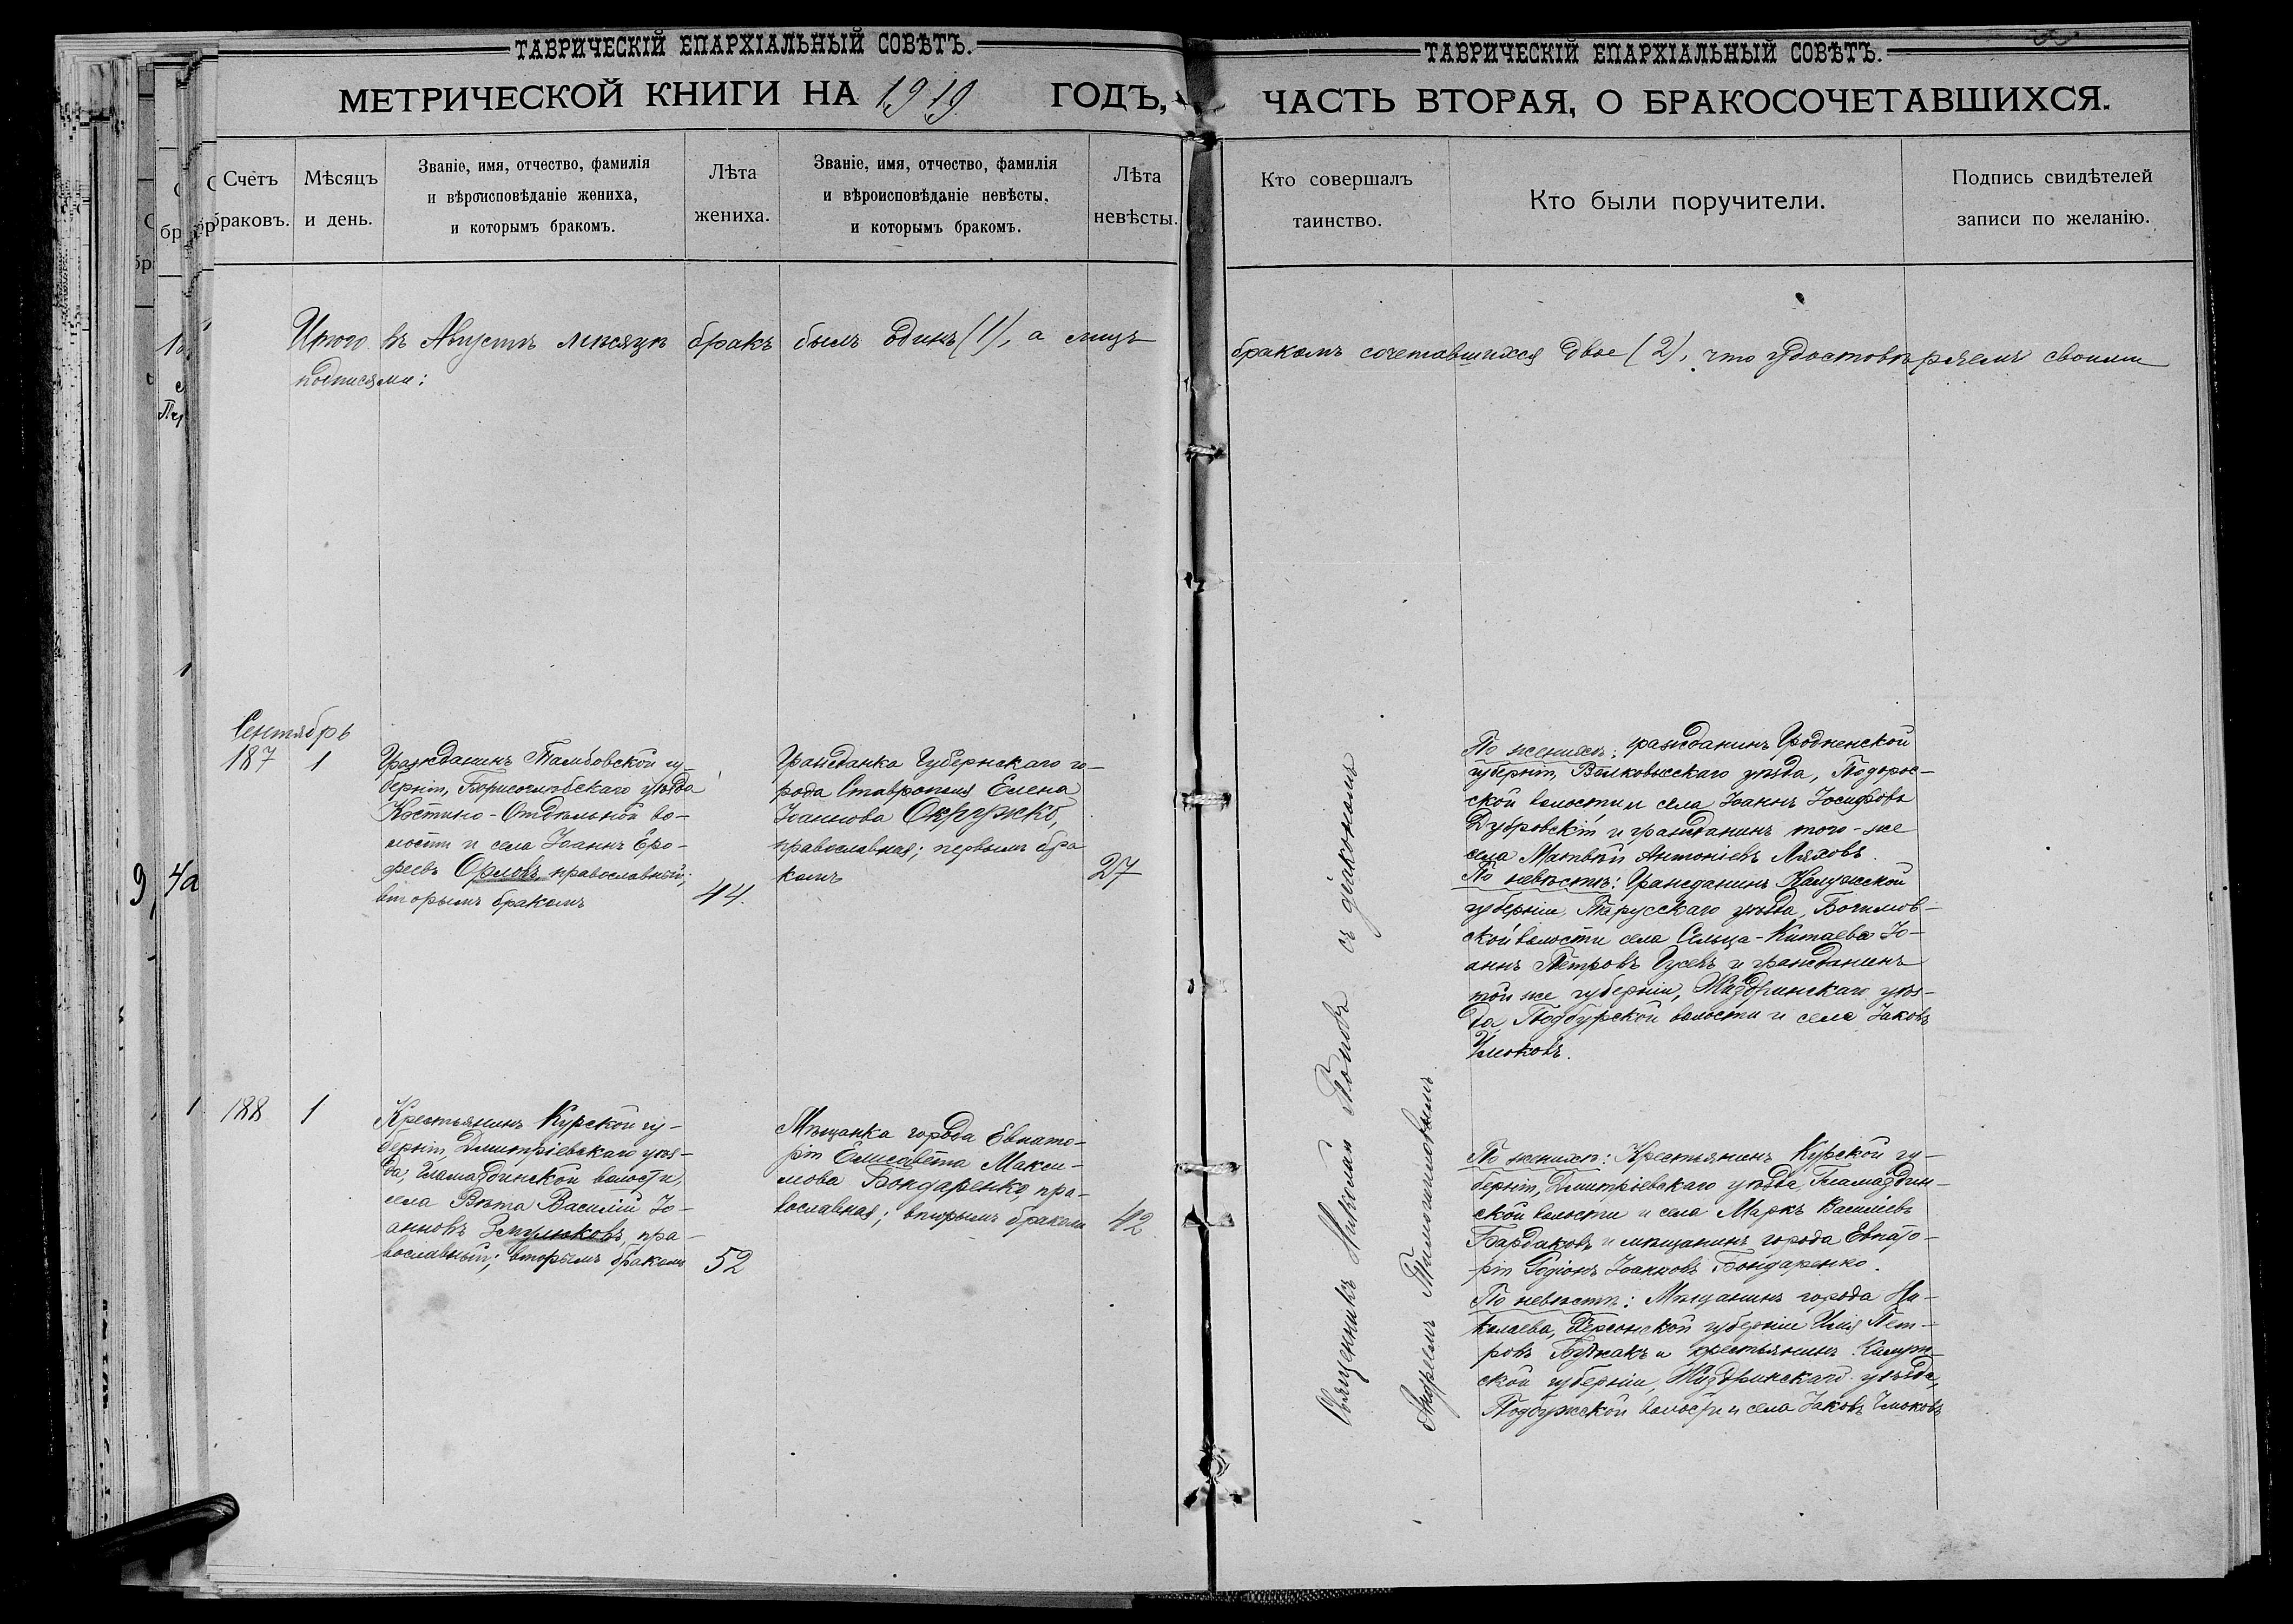 ТАВРИЧЕСКІЙ ЕПАРХІАЛЬНЫЙ СОВѢТЪ.
МЕТРИЧЕСКОЙ КНИГИ НА 1919 ГОДЪ,
Счетъ браковъ.
Мѣсяцъ и день.
Званіе, имя, отчество, фамилія
и вѣроисповѣданіе жениха,
и которымъ бракомъ.
Лѣта жениха.
Званіе, имя, отчество, фамилія
и вѣроисповѣданіе невѣсты,
и которымъ бракомъ.
Лѣта невѣсты.
Итого въ Августѣ мѣсяцѣ бракъ былъ одинъ (1), а лицъ
подписями:
Сентябрь
187 1
Гражданинъ Тамбовской гу-
берніи, Борисоглѣбскаго уѣзда
Костино-Отдѣльной во-
лости и села Іоаннъ Еро-
феевъ Орловъ, православный;
вторымъ бракомъ
44.
Гражданка Губернскаго го-
рода Ставрополя Елена
Іоаннова Окружко,
православная; первымъ бра
комъ
27
188 1
Крестьянинъ Курской гу-
берніи, Дмитріевскаго уѣз-
да, Гламаздинской волости,
села Вѣта Василій Іо-
анновъ Змулюковъ, пра-
вославный; вторымъ бракомъ
52
Мѣщанка города Евпато-
ріи Елисавета Макси-
мова Бондаренко, пра-
вославная; вторымъ бракомъ
42
ТАВРИЧЕСКІЙ ЕПАРХІАЛЬНЫЙ СОВѢТЪ.
ЧАСТЬ ВТОРАЯ, О БРАКОСОЧЕТАВШИХСЯ.
Кто совершалъ таинство.
Кто были поручители.
Подпись свидѣтелей
записи по желанію.
бракомъ сочетавшихся двое (2), что удостовѣряемъ своими
Священникъ Николай Поповъ съ діакономъ
Андреемъ
По женихѣ: гражданинъ Гродненской
губерніи, Волковысскаго уѣзда, Подорос-
ской волости и села Іоаннъ Іосифовъ
Дубровскій и гражданинъ того-же
села Матвѣй Антоніевъ Ляховъ.
По невѣстѣ: Гражданинъ Калужской
губерніи, Тарусскаго уѣзда,
ской волости села Сельца-Китаева Іо-
аннъ Петровъ Гусевъ и гражданинъ
той же губерніи, Жиздринскаго уѣз-
да, Подбужской волости и села Іаковъ
По женихѣ: Крестьянинъ Курской гу-
берніи, Дмитріевскаго уѣзда, Гламаздин-
ской волости и села Маркъ Васильевъ
Бардаковъ и мѣщанинъ города Евпато-
ріи Родіонъ Іоанновъ Бондаренко.
По невѣстѣ: Мѣщанинъ города Ни-
колаева, Херсонской губерніи Илія Пет-
ровъ и крестьянинъ Калуж-
ской губерніи, Жиздринскаго уѣзда,
Подбужской волости и села Іаковъ